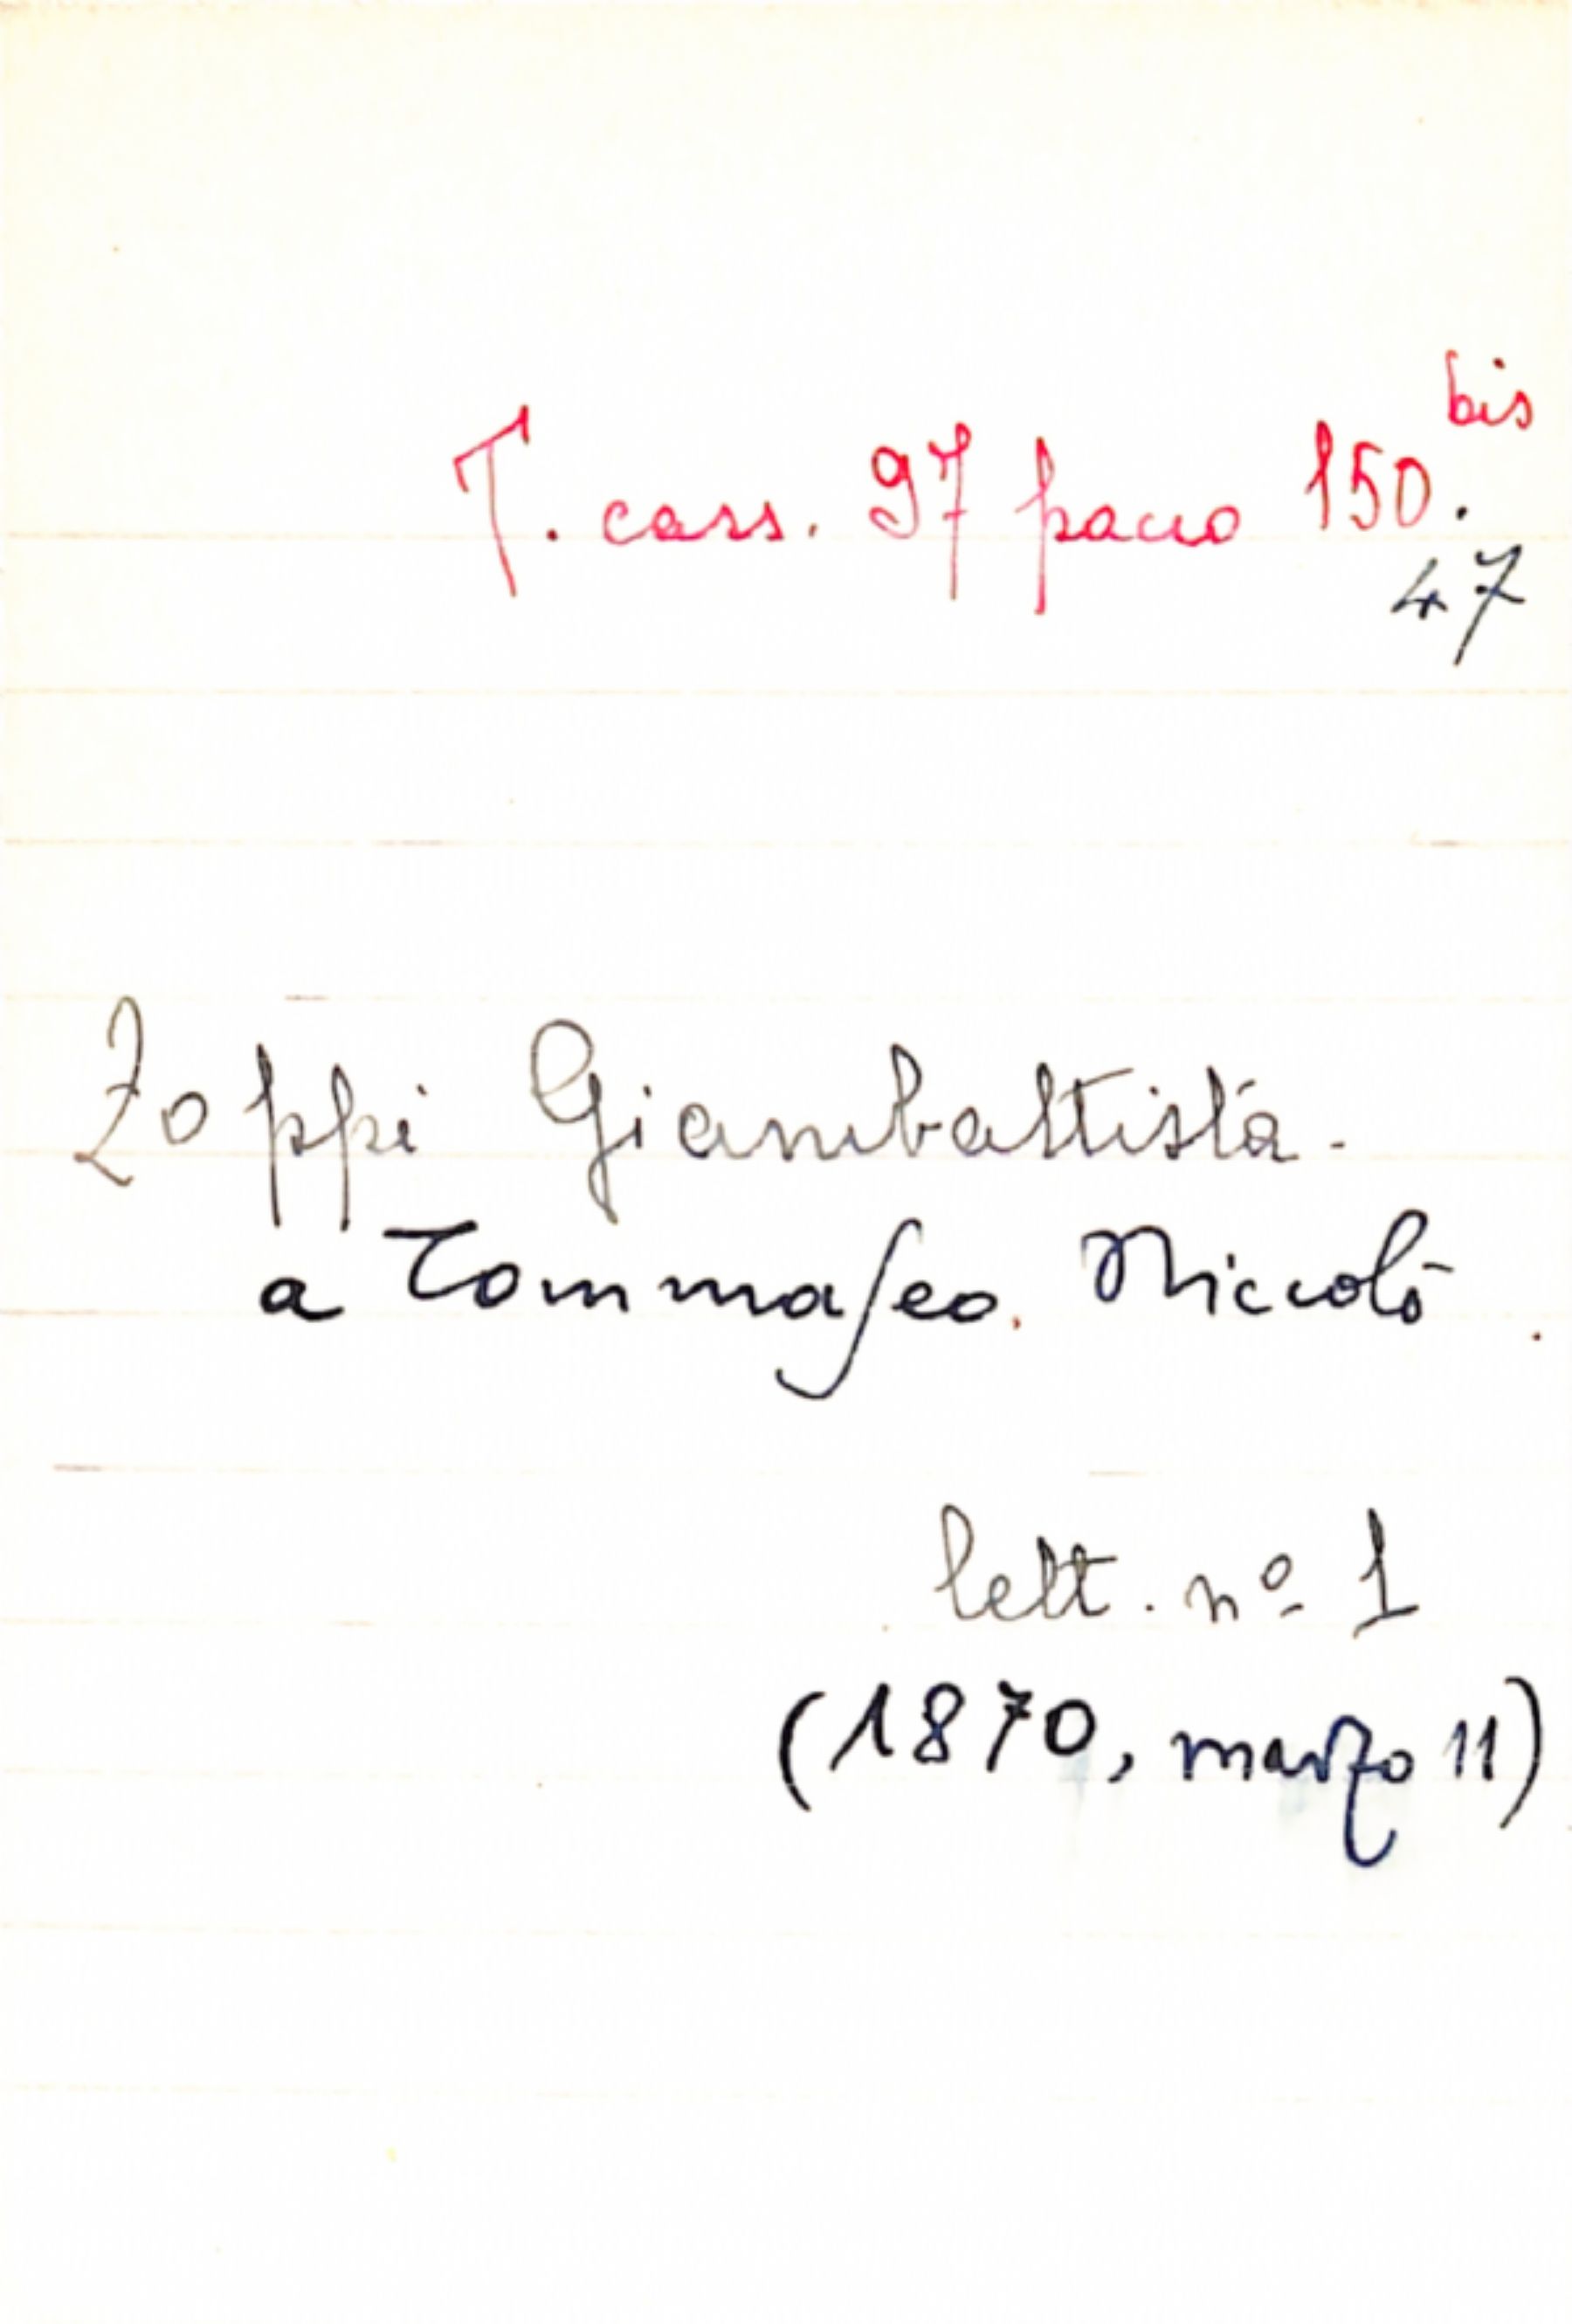 T. cass. 97 pacco 150. bis
47
Zoppi Giambattista.
a Tommaseo. Niccolò.
lett. nº 1
(1870, marzo 11)